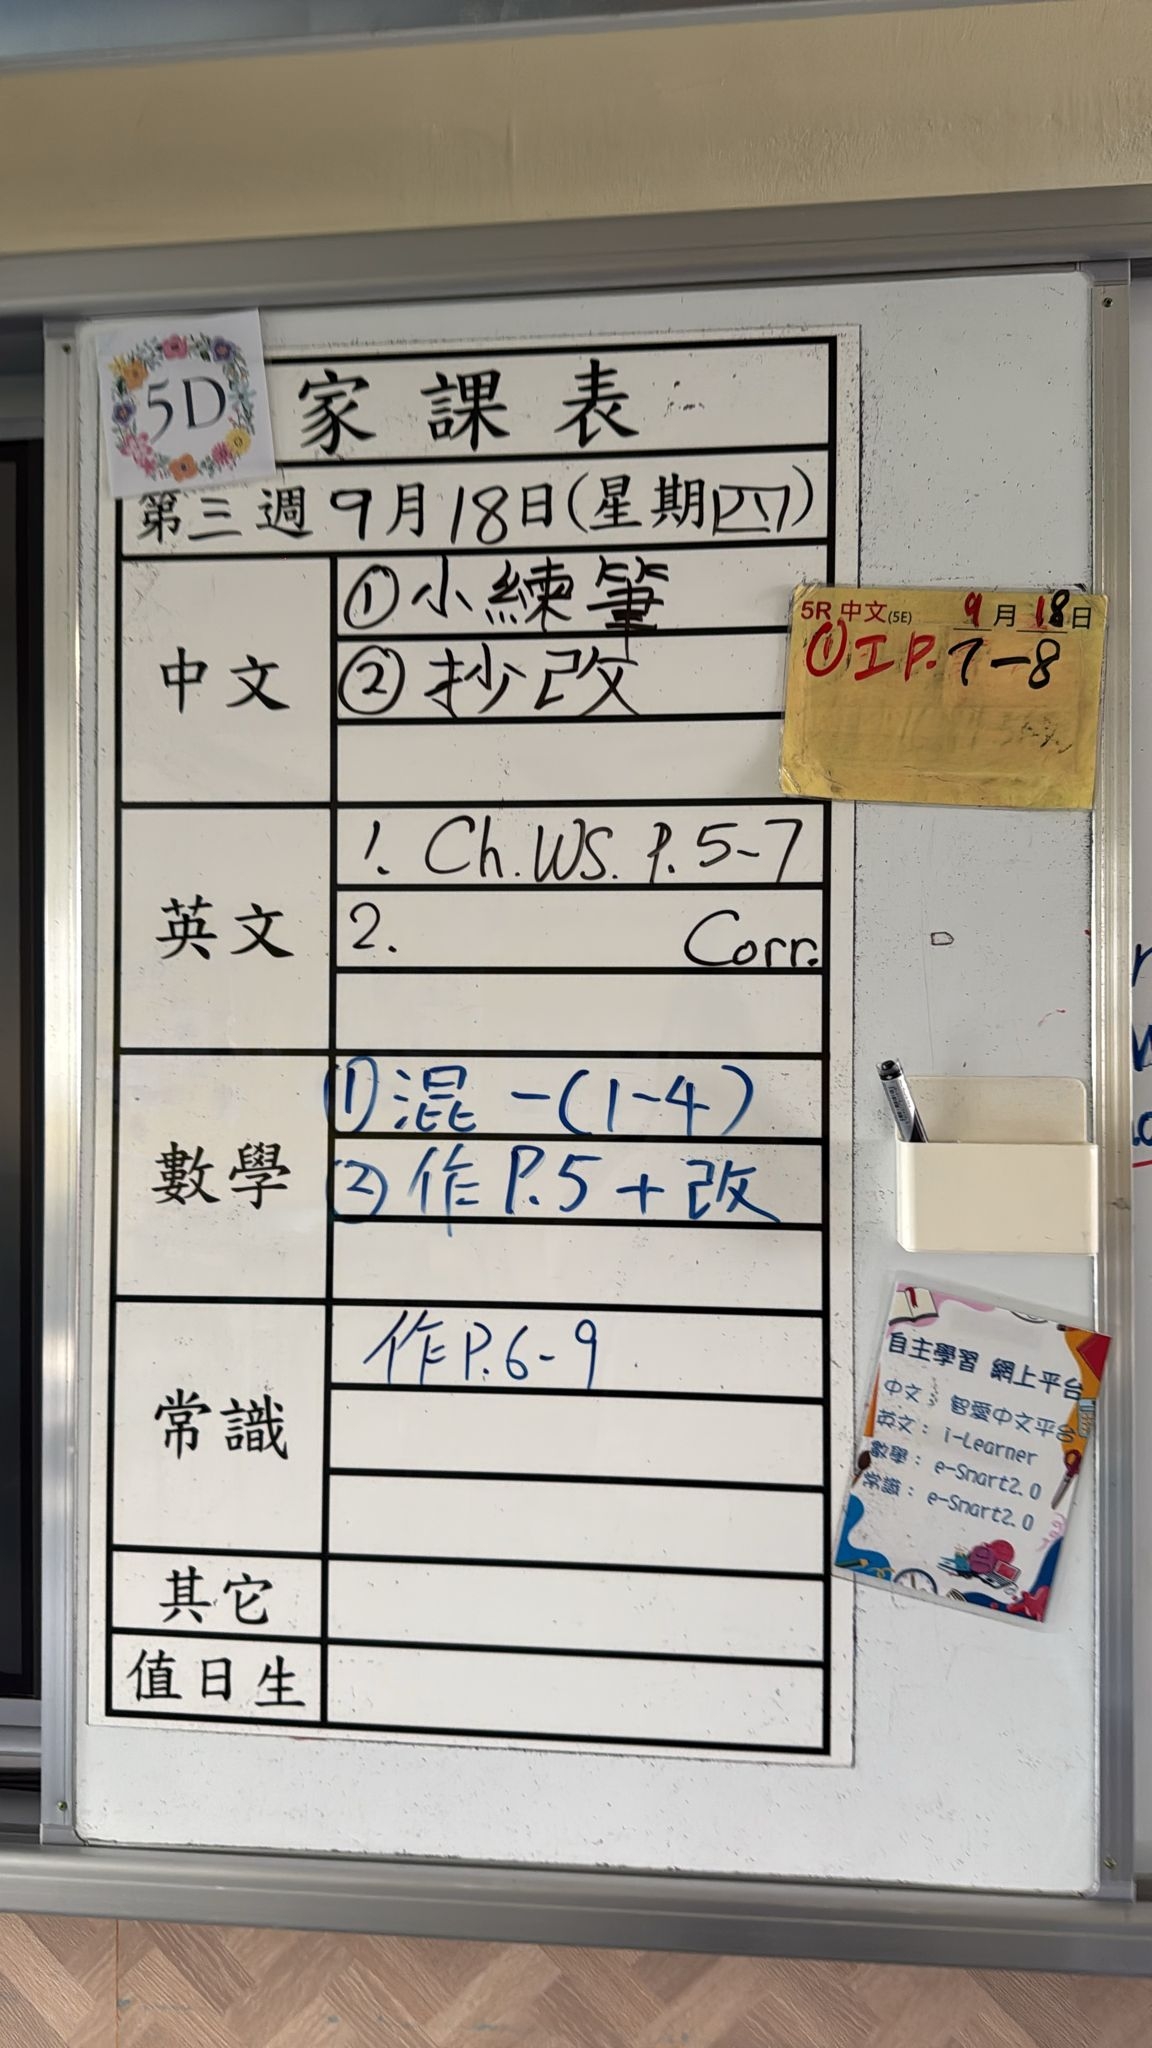 5D
家課表
第三週9月18日(星期四)
中文
①小練筆
②抄改
5R 中文(5E) 9月18日
①工P.7-8
英文
1. Ch.WS. P.5-7
2. Corr.
數學
①混一(1-4)
②作P.5+改
常識
作P.6-9
其它
值日生
自主學習 網上平台
中文：智愛中文平台
英文：i-Learner
數學：e-Smart2.0
常識：e-Smart2.0